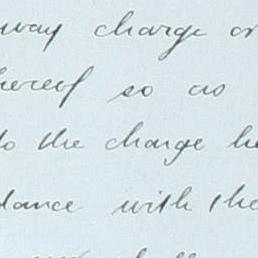 way charge or
hereof so as
to the charge he
dance with the